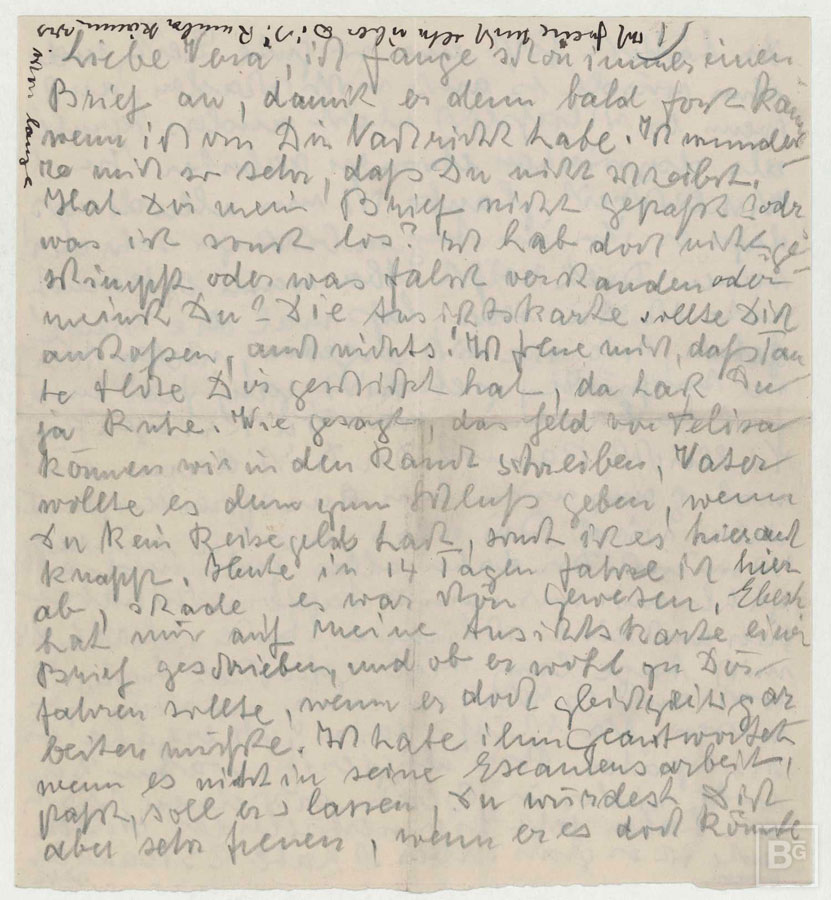 Ich freue mich sehr über Dich!
schon lange
Liebe Vera, ich fange schon immer einen
Brief an, damit er dann bald fort kann
wenn ich von Dir Nachricht habe. Ich wunde-
re mich so sehr, daß Du nicht schreibst.
Hat Dir mein Brief nicht gepaßt? oder
was ist sonst los? Ich hab doch nicht ge-
schimpft oder was falsch verstanden oder
meinst Du? Die Ansichtskarte sollte Dich
anstoßen, auch nichts! Ich freue mich, daß Tan-
te Dir geschickt hat, da hast Du
ja Ruhe. Wie gesagt, das Geld von Felisa
können wir in den Rauch schreiben, Vater
wollte es dann zum Schluß geben, wenn
Du kein Reisegeld hast, sonst ist es hier auch
knapp. Heute in 14 Tagen fahre ich hier
ab, schade, es war schön gewesen. Eberh
hat mir auf meine Ansichtskarte einen
Brief geschrieben, und ob er wohl zu Dir
fahren sollte, wenn er doch gleichzeitig ar
beiten müßte. Ich habe ihm geantwortet
wenn es nicht in seine Examensarbeit,
paßt, soll er's lassen, Du würdest Dich
aber sehr freuen, wenn er es doch könnte
BG